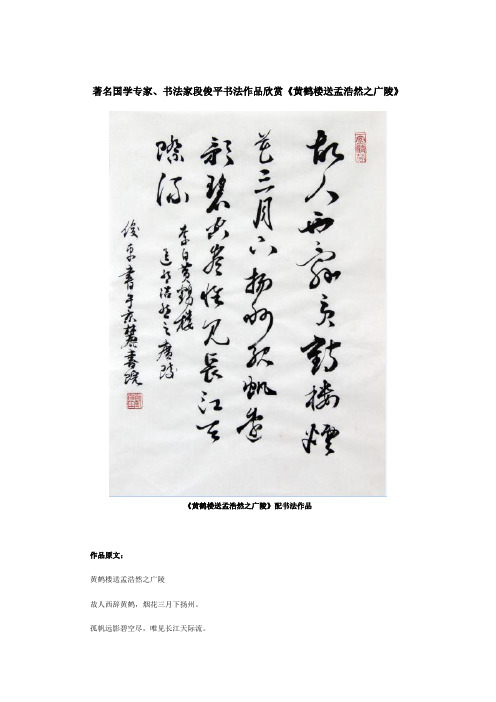 著名国学专家、书法家段俊平书法作品欣赏《黄鹤楼送孟浩然之广陵》
故人西辭黄鶴樓煙
花三月下揚州孤帆遠
影碧空盡惟見長江天
際流
李白黄鶴樓
送孟浩然之廣陵
俊平書于京麓書院
《黄鹤楼送孟浩然之广陵》配书法作品
作品原文：
黄鹤楼送孟浩然之广陵
故人西辞黄鹤，烟花三月下扬州。
孤帆远影碧空尽，唯见长江天际流。